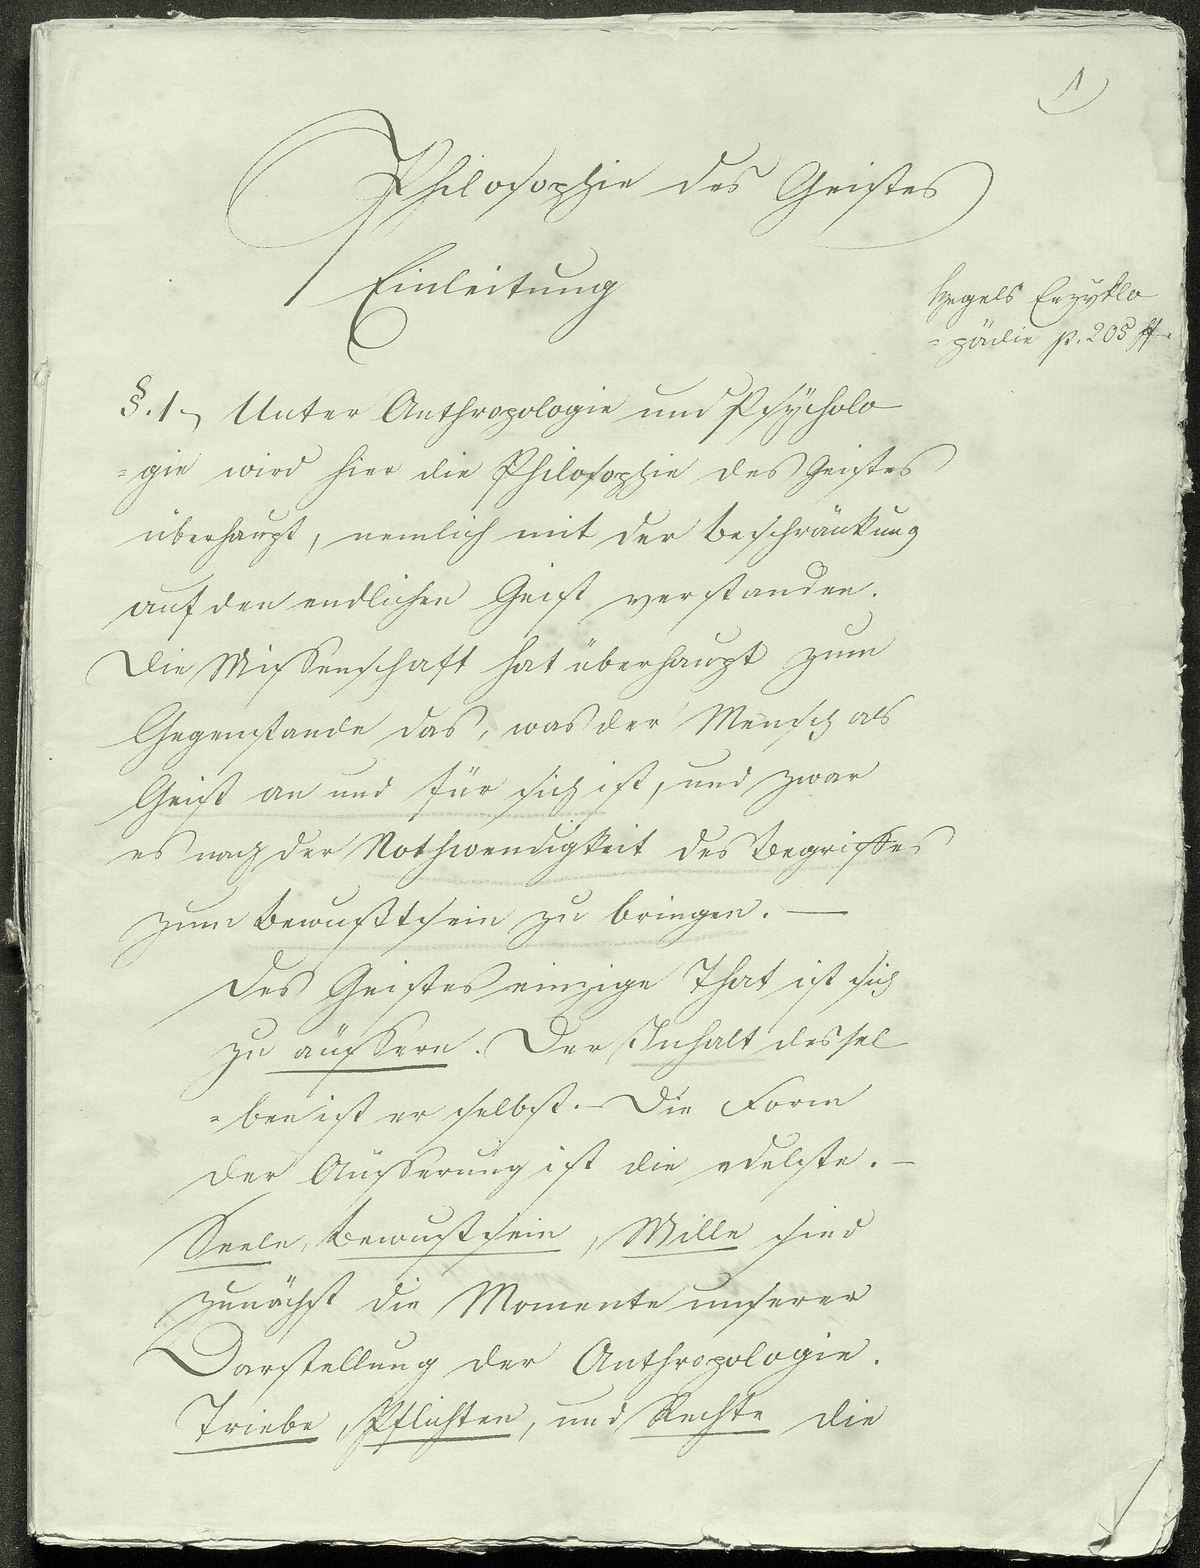 1
Philosophie des Geistes
Einleitung
Hegels Enzyklo
=pädie p. 205 ff.
§. 1., Unter Anthropologie und Psÿcholo
=gie wird hier die Philosophie des Geistes
überhaupt, nemlich mit der Beschränkung
auf den endlichen Geist verstanden.
Die Wissenschaft hat überhaupt zum
Gegenstande das, was der Mensch als
Geist an und für sich ist, und zwar
es nach der Nothwendigkeit des Begriffes
zum Bewußtsein zu bringen. —
Des Geistes einzige That ist sich
zu äussern. Der Inhalt dessel
=ben ist er selbst. – Die Form
der Äusserung ist die edelste. –
Seele, Bewustsein, Wille sind
zunächst die Momente unserer
Darstellung der Anthropologie.
Triebe, Pflichten, und Rechte die